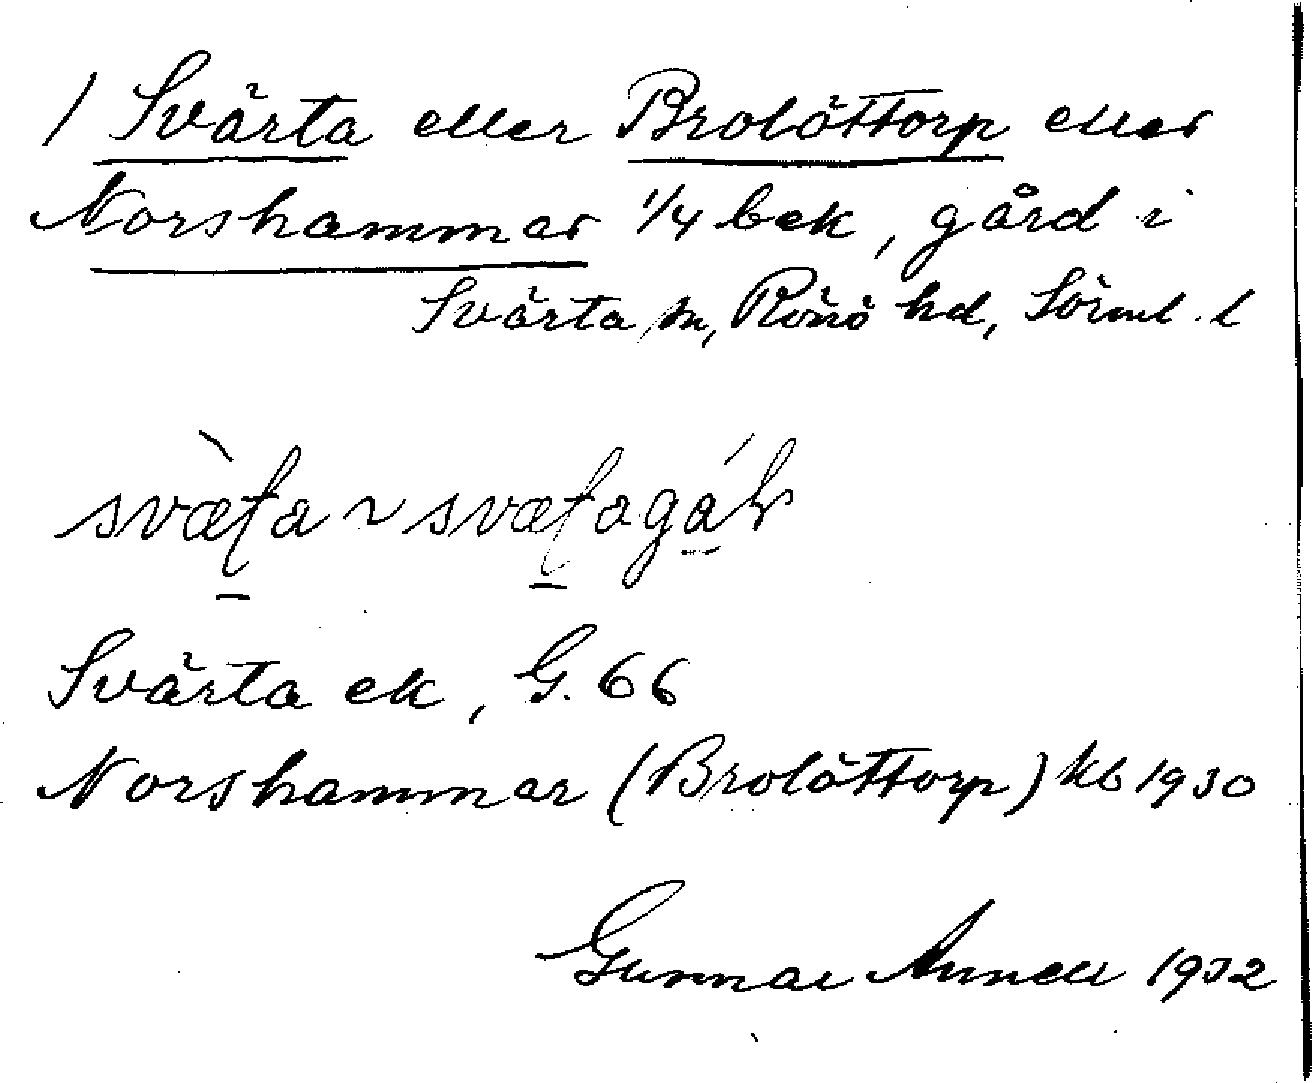 1 Svärta eller Brolöttorp eller
Norshammar 1/4 bek, gård i
Svärta sn, Rönö hd, Sörml. l
Svärta ek, G. 66
Norshammar (Brolöttorp) kb 1930
Gunnar Annell 1932